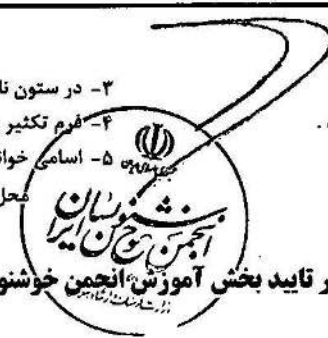 ۳- در ستون نا
۴- فرم تکثیر
۵- اسامی خوان
محل
انجمن خوشنویسان ایران
ر تایید بخش آموزش انجمن خوشنو